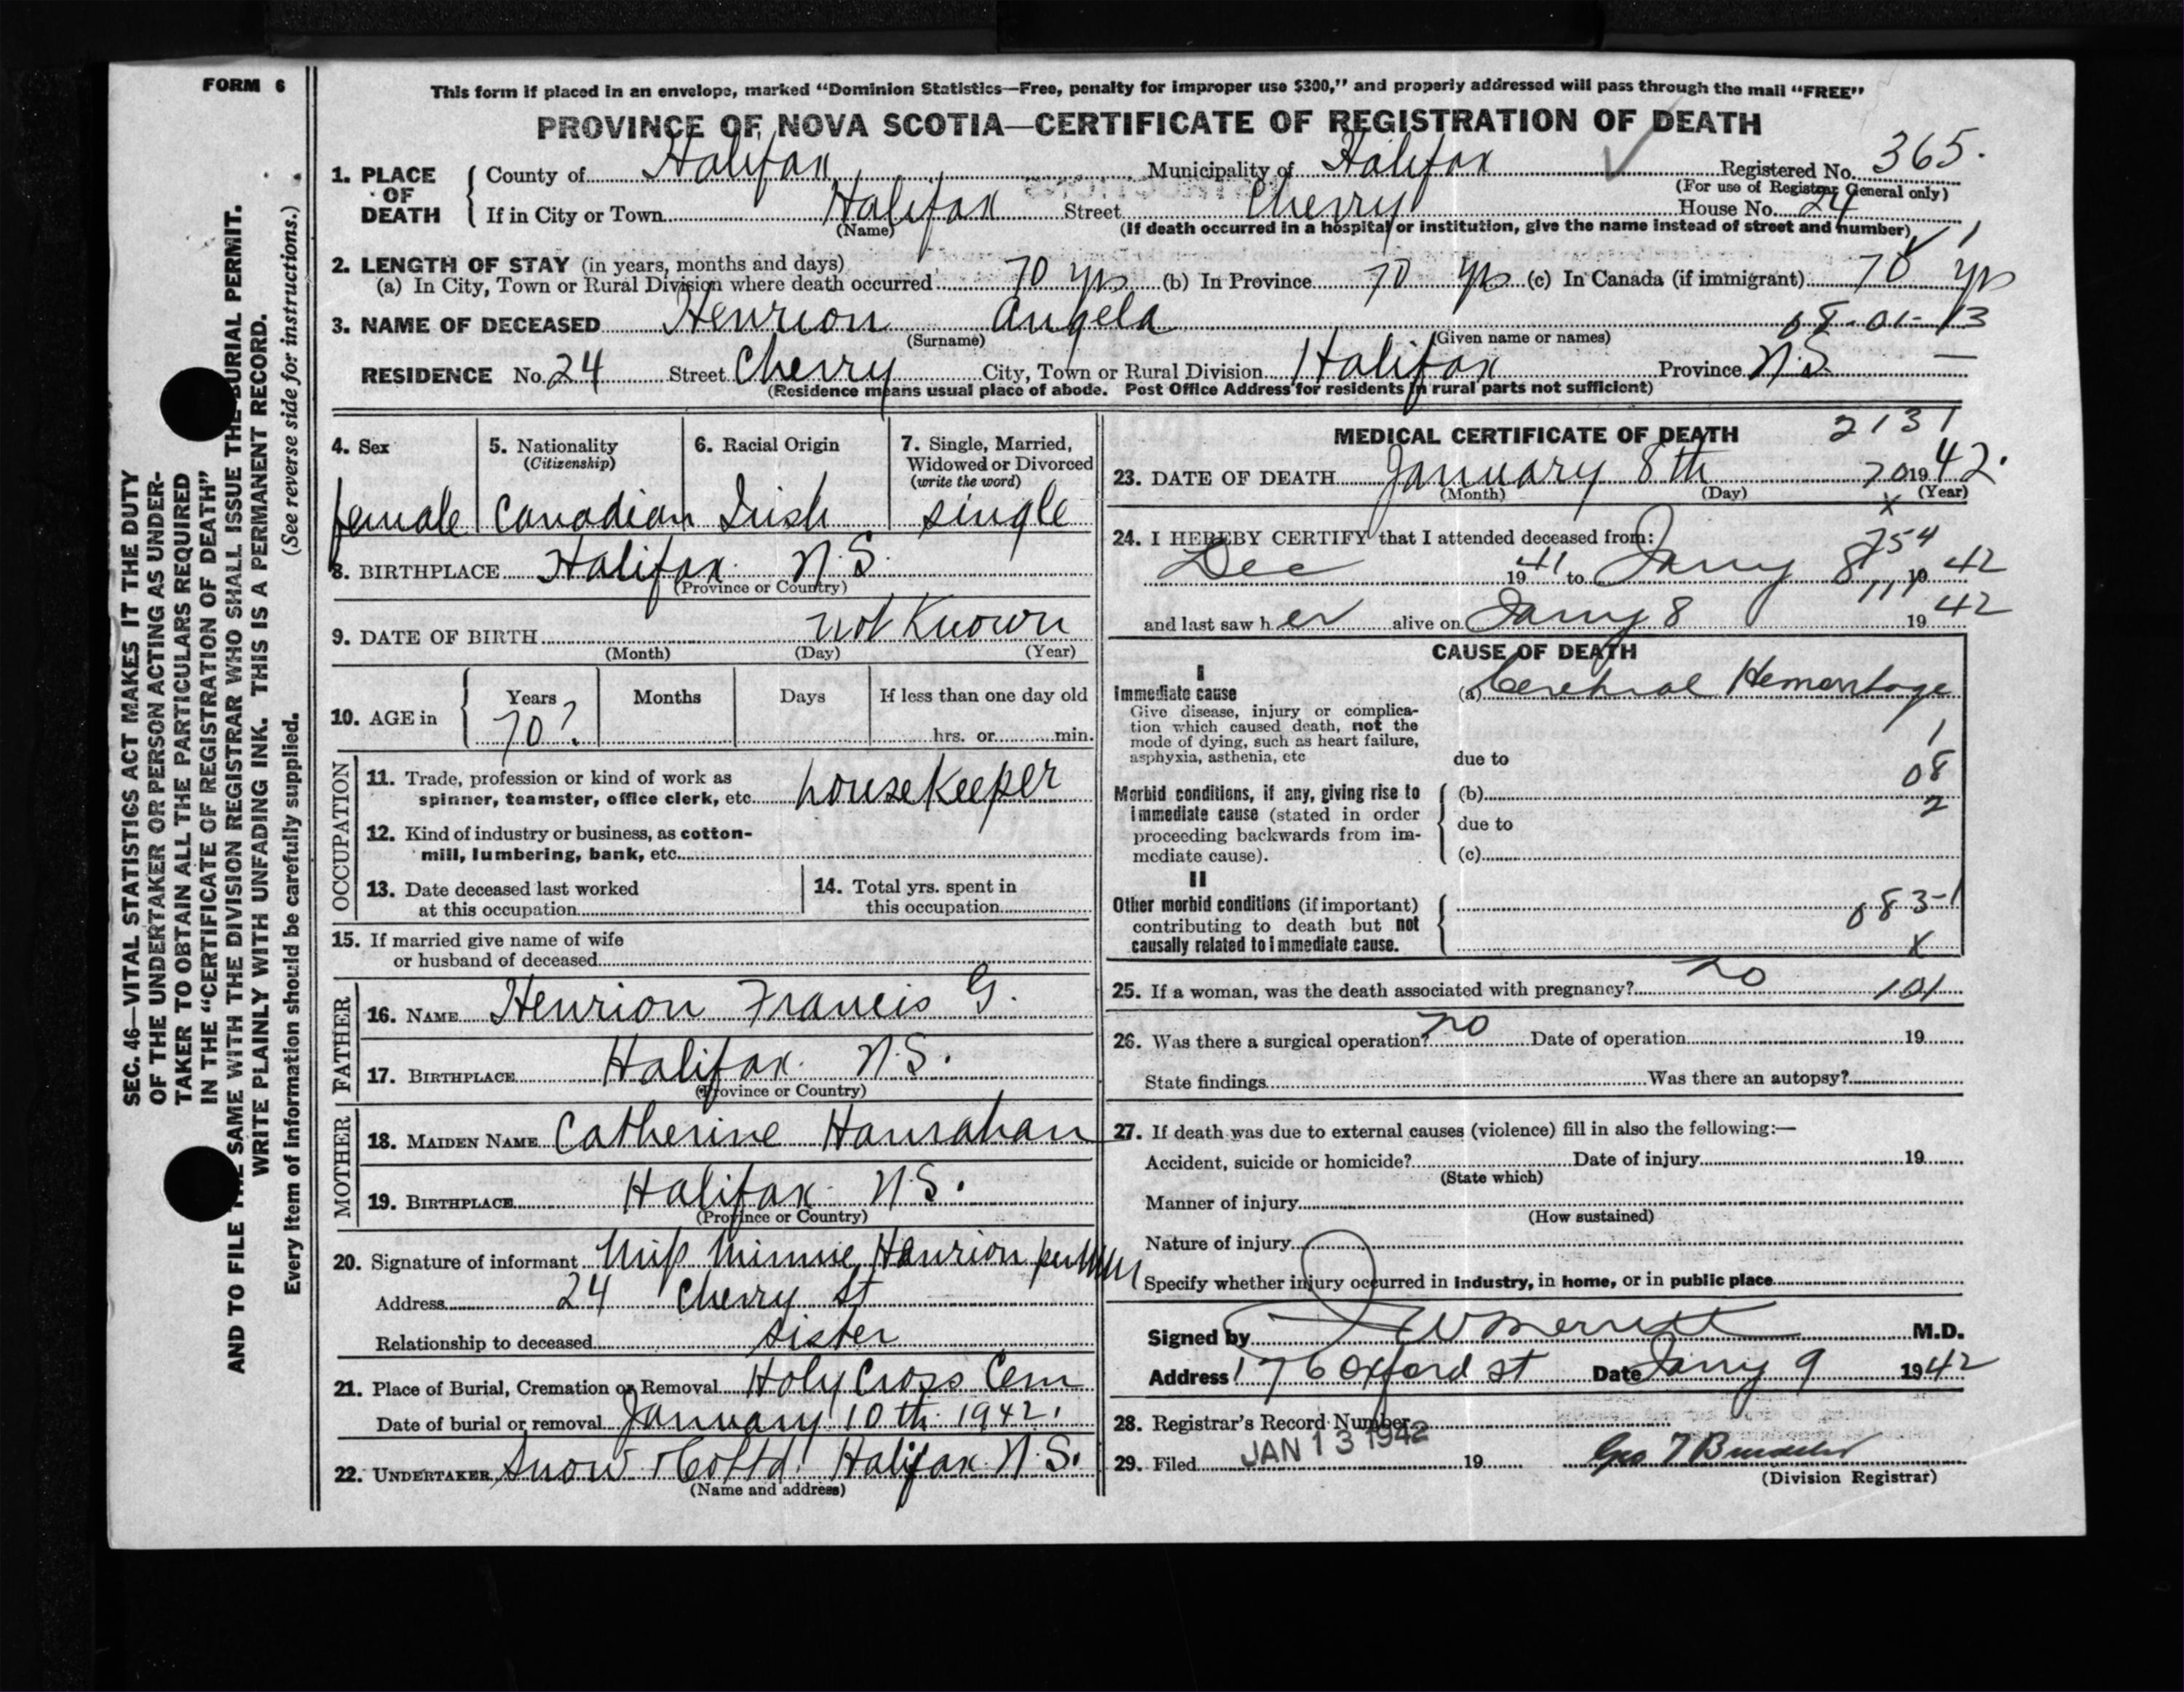 FORM 6
This form if placed in an envelope, marked "Dominion Statistics—Free, penalty for improper use $300," and properly addressed will pass through the mail "FREE"
PROVINCE OF NOVA SCOTIA—CERTIFICATE OF REGISTRATION OF DEATH
1. PLACE OF DEATH { County of Halifax Municipality of Halifax Registered No. 365.
(For use of Registrar General only)
If in City or Town Halifax Street Cherry House No. 24
(Name) (If death occurred in a hospital or institution, give the name instead of street and number)
2. LENGTH OF STAY (in years, months and days)
(a) In City, Town or Rural Division where death occurred 70 yrs (b) In Province 70 yrs (c) In Canada (if immigrant) 70 yrs
3. NAME OF DECEASED Henrion Angela 08-01-13
(Surname) (Given name or names)
RESIDENCE No. 24 Street Cherry City, Town or Rural Division Halifax Province N.S. —
(Residence means usual place of abode. Post Office Address for residents in rural parts not sufficient)
4. Sex
female
5. Nationality
(Citizenship)
Canadian
6. Racial Origin
Irish
7. Single, Married,
Widowed or Divorced
(write the word)
single
8. BIRTHPLACE Halifax N.S.
(Province or Country)
9. DATE OF BIRTH not Known
(Month) (Day) (Year)
10. AGE in { Years Months Days If less than one day old
70? hrs. or min.
OCCUPATION
11. Trade, profession or kind of work as
spinner, teamster, office clerk, etc. housekeeper
12. Kind of industry or business, as cotton-
mill, lumbering, bank, etc.
13. Date deceased last worked
at this occupation
14. Total yrs. spent in
this occupation
15. If married give name of wife
or husband of deceased
FATHER
16. NAME Henrion Francis G.
17. BIRTHPLACE Halifax. N.S.
(Province or Country)
MOTHER
18. MAIDEN NAME Catherine Hanrahan
19. BIRTHPLACE Halifax N.S.
(Province or Country)
20. Signature of informant Miss Minnie Henrion per
Address 24 Cherry St
Relationship to deceased sister
21. Place of Burial, Cremation or Removal Holy Cross Cem
Date of burial or removal January 10th 1942.
22. UNDERTAKER Snow & Co Ltd. Halifax N.S.
(Name and address)
MEDICAL CERTIFICATE OF DEATH 2131
23. DATE OF DEATH January 8th 70 1942.
(Month) (Day) (Year)
x
24. I HEREBY CERTIFY that I attended deceased from:
254
Dec 1941 to Jany 8 1942
111
and last saw her alive on Jany 8 1942
CAUSE OF DEATH
I
Immediate cause
Give disease, injury or complica-
tion which caused death, not the
mode of dying, such as heart failure,
asphyxia, asthenia, etc
(a) Cerebral Hemorrhage
1
due to
08
Morbid conditions, if any, giving rise to
immediate cause (stated in order
proceeding backwards from im-
mediate cause).
(b)
2
due to
(c)
II
Other morbid conditions (if important)
contributing to death but not
causally related to immediate cause.
083-1
x
25. If a woman, was the death associated with pregnancy? no 101
26. Was there a surgical operation? no Date of operation 19
State findings Was there an autopsy?
27. If death was due to external causes (violence) fill in also the following:—
Accident, suicide or homicide? Date of injury 19
(State which)
Manner of injury
(How sustained)
Nature of injury
Specify whether injury occurred in industry, in home, or in public place
Signed by Merritt M.D.
Address 176 Oxford st Date Jany 9 1942
28. Registrar's Record Number
29. Filed JAN 13 1942 19
(Division Registrar)
SEC. 46—VITAL STATISTICS ACT MAKES IT THE DUTY
OF THE UNDERTAKER OR PERSON ACTING AS UNDER-
TAKER TO OBTAIN ALL THE PARTICULARS REQUIRED
IN THE "CERTIFICATE OF REGISTRATION OF DEATH"
AND TO FILE THE SAME WITH THE DIVISION REGISTRAR WHO SHALL ISSUE THE BURIAL PERMIT.
WRITE PLAINLY WITH UNFADING INK. THIS IS A PERMANENT RECORD.
Every item of information should be carefully supplied. (See reverse side for instructions.)